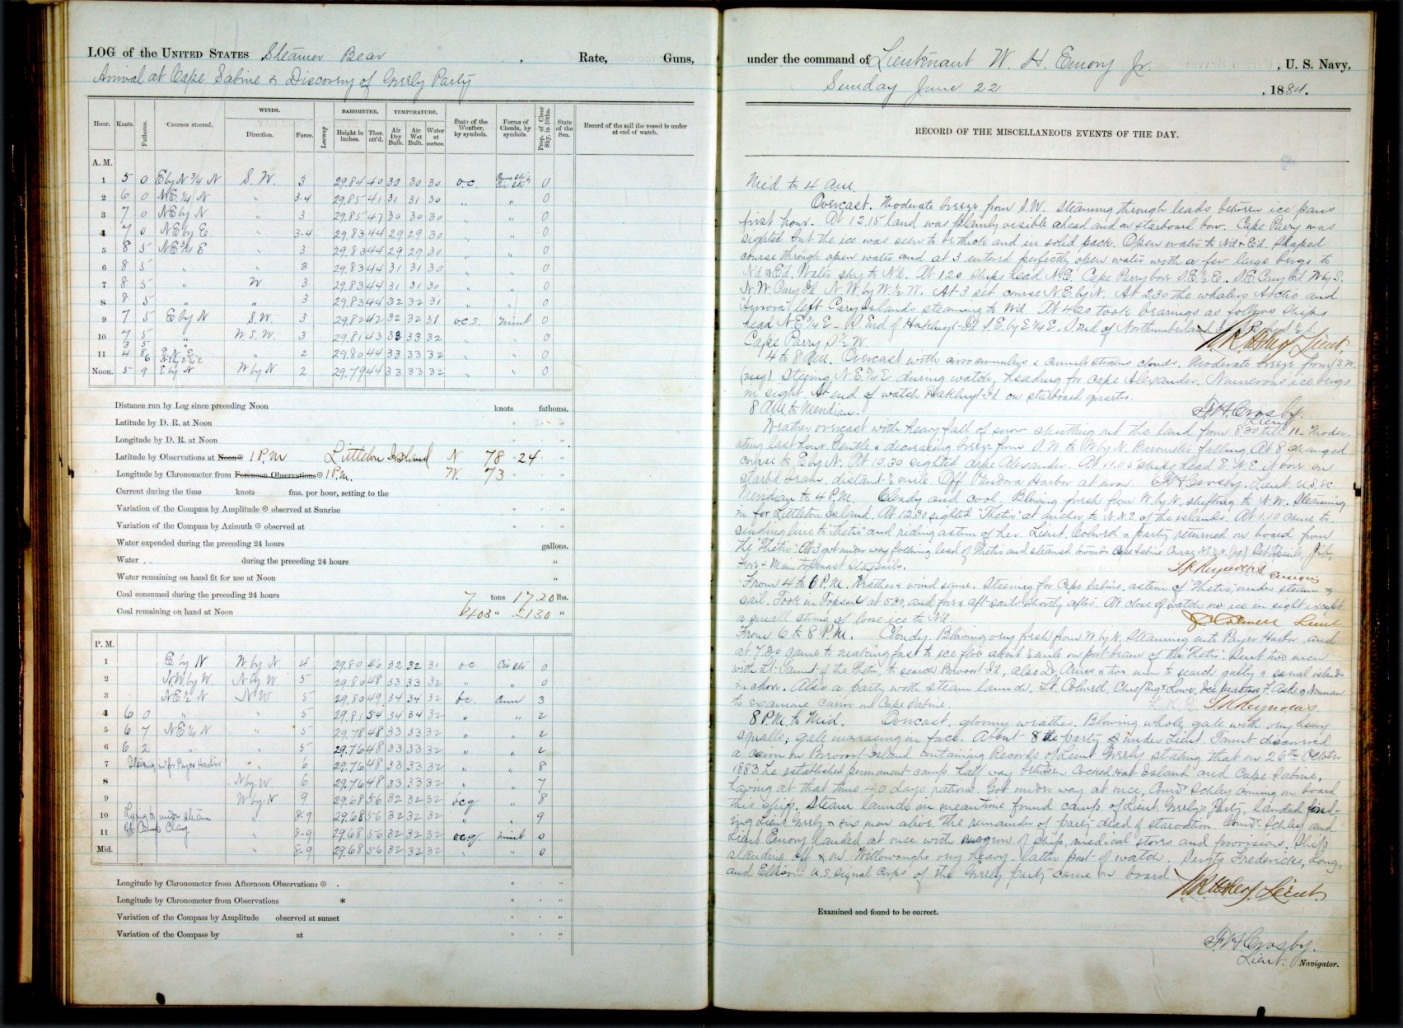 LOG of the UNITED STATES Steamer Bear , Rate, Guns,
Arrival at Cape Sabine & Discovery of Greely Party
Hour. Knots. Fathoms. Courses steered. WINDS. Direction. Force. Leeway BAROMETER. Height in inches. Ther. att'd. TEMPERATURE. Air Dry Bulb. Air Wet Bulb. Water at surface. State of the Weather, by symbols. Forms of Clouds, by symbols. Prop. of Clear Sky, in 10ths. State of the Sea. Record of the sail the vessel is under at end of watch.
A. M.
1 5 0 E by N ¾ N S. W. 3 29.84 40 30 30 30 o.c. 0
2 6 0 N E ¼ N " 3.4 29.85 41 31 31 30 " " 0
3 7 0 N E by N " 3 29.85 47 30 30 30 " " 0
4 7 0 N E by E " 3-4 29.83 44 29 29 30 " " 0
5 8 5 N E ¾ E " 3 29.83 44 29 29 30 " " 0
6 8 5 " " 3 29.83 44 31 31 30 " " 0
7 8 5 " W 3 29.83 44 31 31 30 " " 0
8 8 5 " " 3 29.83 44 32 32 31 " " 0
9 7 5 E by N S. W. 3 29.82 42 32 32 31 o.c.s. nimb 0
10 7 5 " W. S. W. 3 29.81 43 33 33 32 " " 0
11 4 6 " 2 29.80 44 33 33 32 " " 0
Noon. 5 9 E by N W by N 2 29.79 44 33 33 32 " " 0
Distance run by Log since preceding Noon knots fathoms.
Latitude by D. R. at Noon
Longitude by D. R. at Noon
Latitude by Observations at Noon 1 P.M Littleton Island N 78 - 24
Longitude by Chronometer from Forenoon Observations 1 P.M. W. 73 -
Current during the time knots fms. per hour, setting to the
Variation of the Compass by Amplitude observed at Sunrise
Variation of the Compass by Azimuth observed at
Water expended during the preceding 24 hours gallons.
Water . . during the preceding 24 hours "
Water remaining on hand fit for use at Noon "
Coal consumed during the preceding 24 hours 7 tons 1720 lbs.
Coal remaining on hand at Noon
P. M.
1 E by N W by N 4 29.80 46 32 32 31 o.c Cir str 0
2 N W by W. N by W. 5 29.80 48 33 33 32 " " 0
3 N E ½ N N W 5 29.80 49 34 34 32 b.c. cum 3
4 6 0 " " 5 29.81 54 34 34 32 " " 2
5 6 7 N E ½ N " 5 29.78 48 33 33 32 " " 2
6 6 2 " " 5 29.76 48 33 33 32 " " 2
7 Steaming for Payer Harbor " 6 29.76 48 33 33 32 " " 8
8 N by W 6 29.76 48 33 33 32 " " 7
9 W by N 9 29.68 56 32 32 32 o.c.g " 8
10 Lying to under steam " 8-9 29.68 56 32 32 32 " " 9
11 off Camp Clay " 8-9 29.68 56 32 32 32 o.c.g. nimb 0
Mid. " 8-9 29.68 56 32 32 32 " " 0
Longitude by Chronometer from Afternoon Observations
Longitude by Chronometer from Observations *
Variation of the Compass by Amplitude observed at sunset
Variation of the Compass by at
under the command of Lieutenant W. H. Emory Jr. , U. S. Navy,
Sunday June 22 , 1884.
RECORD OF THE MISCELLANEOUS EVENTS OF THE DAY.
Mid to 4 a.m.
Overcast. Moderate breeze from S.W. Steaming through leads between ice pans
first hour. At 12.15 land was plainly visible ahead and on starboard bow. Cape Parry was
sighted but the ice was seen to be thick and in solid pack. Open water to Nd & Ed. Shaped
course through open water and at 3 entered perfectly open water with a few large bergs to
Nd & Ed. Water sky to Nd. At 1.20 ships head N E. Cape Parry bore S.E. ½ E. S.E. Cary Id W by S.
N. W. Cary Id N. W by W ½ W. At 3 set course N.E. by N. At 2.30 the whalers Arctic and
Aurora left Cary Islands steaming to Wd. At 4.00 took bearings as follows ships
head N.E ¾ E - N. End of Hakluyt Id S.E. by E ¾ E. S. End of Northumberland Id
Cape Parry S ½ W.
4 to 8 A.M. Overcast with cirro cumulus & cumulo stratus clouds. Moderate breeze from S W.
Steering N. E. ¾ E during watch, heading for Cape Alexander. Numerous ice bergs
in sight. At end of watch Hakluyt Id on starboard quarter.
F. H. Crosby
Lieut
8 A.M. to Meridian.
Weather overcast with heavy fall of snow shutting out the land from 8.30 till 10. Moder-
ating last hour. Gentle & decreasing breeze from S W to W by N. Barometer falling. At 8 changed
course to E by N. At 10.30 sighted Cape Alexander. At 11.05 ships head E ½ E. it bore on
starbd beam, distant ½ mile. Off Pandora Harbor at noon. F. H. Crosby. Lieut. U.S.N.
Meridian to 4 P.M. Cloudy and cool. Blowing fresh from W by N. shifting to N.W. Steaming
in for Littleton Island. At 12.30 sighted "Thetis" at anchor to N. & E. of the islands. At 1.10 came to
sending line to "Thetis" and riding astern of her. Lieut. Colwell & party returned on board from
the "Thetis". At 3 got under way following lead of Thetis and steamed toward Cape Sabine
S. H. Reynolds
Ensign
From 4 to 6 P.M. Weather & wind same. Steering for Cape Sabine, astern of "Thetis", under steam &
sail. Took in Topsail at 5.00, and fore & aft sails shortly after. At close of watch no ice in sight except
a small string of loose ice to Nd.
J. C. Colwell Lieut
From 6 to 8 P.M. Cloudy. Blowing very fresh from W by N. Steaming into Payer Harbor and
at 7.30 came to making fast to ice floe about ½ mile on port beam of the "Thetis". Sent two men
with Lt. Taunt of the "Thetis" to search Brevoort Id, also Dr. Ames & two men to search gully & small islands
in shore. Also a party with steam launch, Lt. Colwell, Chief Engr Lowe, Ice Masters F. Ash & Norman
to examine cairn on Cape Sabine.
S. H. Reynolds.
8 P.M. to Mid. Overcast, gloomy weather. Blowing whole gale with very heavy
squalls; gale increasing in force. About 8 the party under Lieut Taunt discovered
a cairn on Brevoort Island containing Records of Lieut Greely stating that on
1883 he established permanent camp half way between Cocked Hat Island and Cape Sabine,
having at that time 40 days rations. Got under way at once, Comd'r Schley coming on board
this ship. Steam launch in meantime found camp of Lieut Greely's Party. Landed find-
ing Lieut Greely & six men alive, the remainder of party dead of starvation. Comd'r Schley and
Lieut Emory landed at once with surgeon of ship, medical stores and provisions. Ship
standing off & on. Willewaughs very heavy latter part of watch. Sergts Fredericks, Long,
and Ellison U.S. Signal Corps of the Greely party came on board
Lieut
Examined and found to be correct.
F. H. Crosby.
Lieut. Navigator.